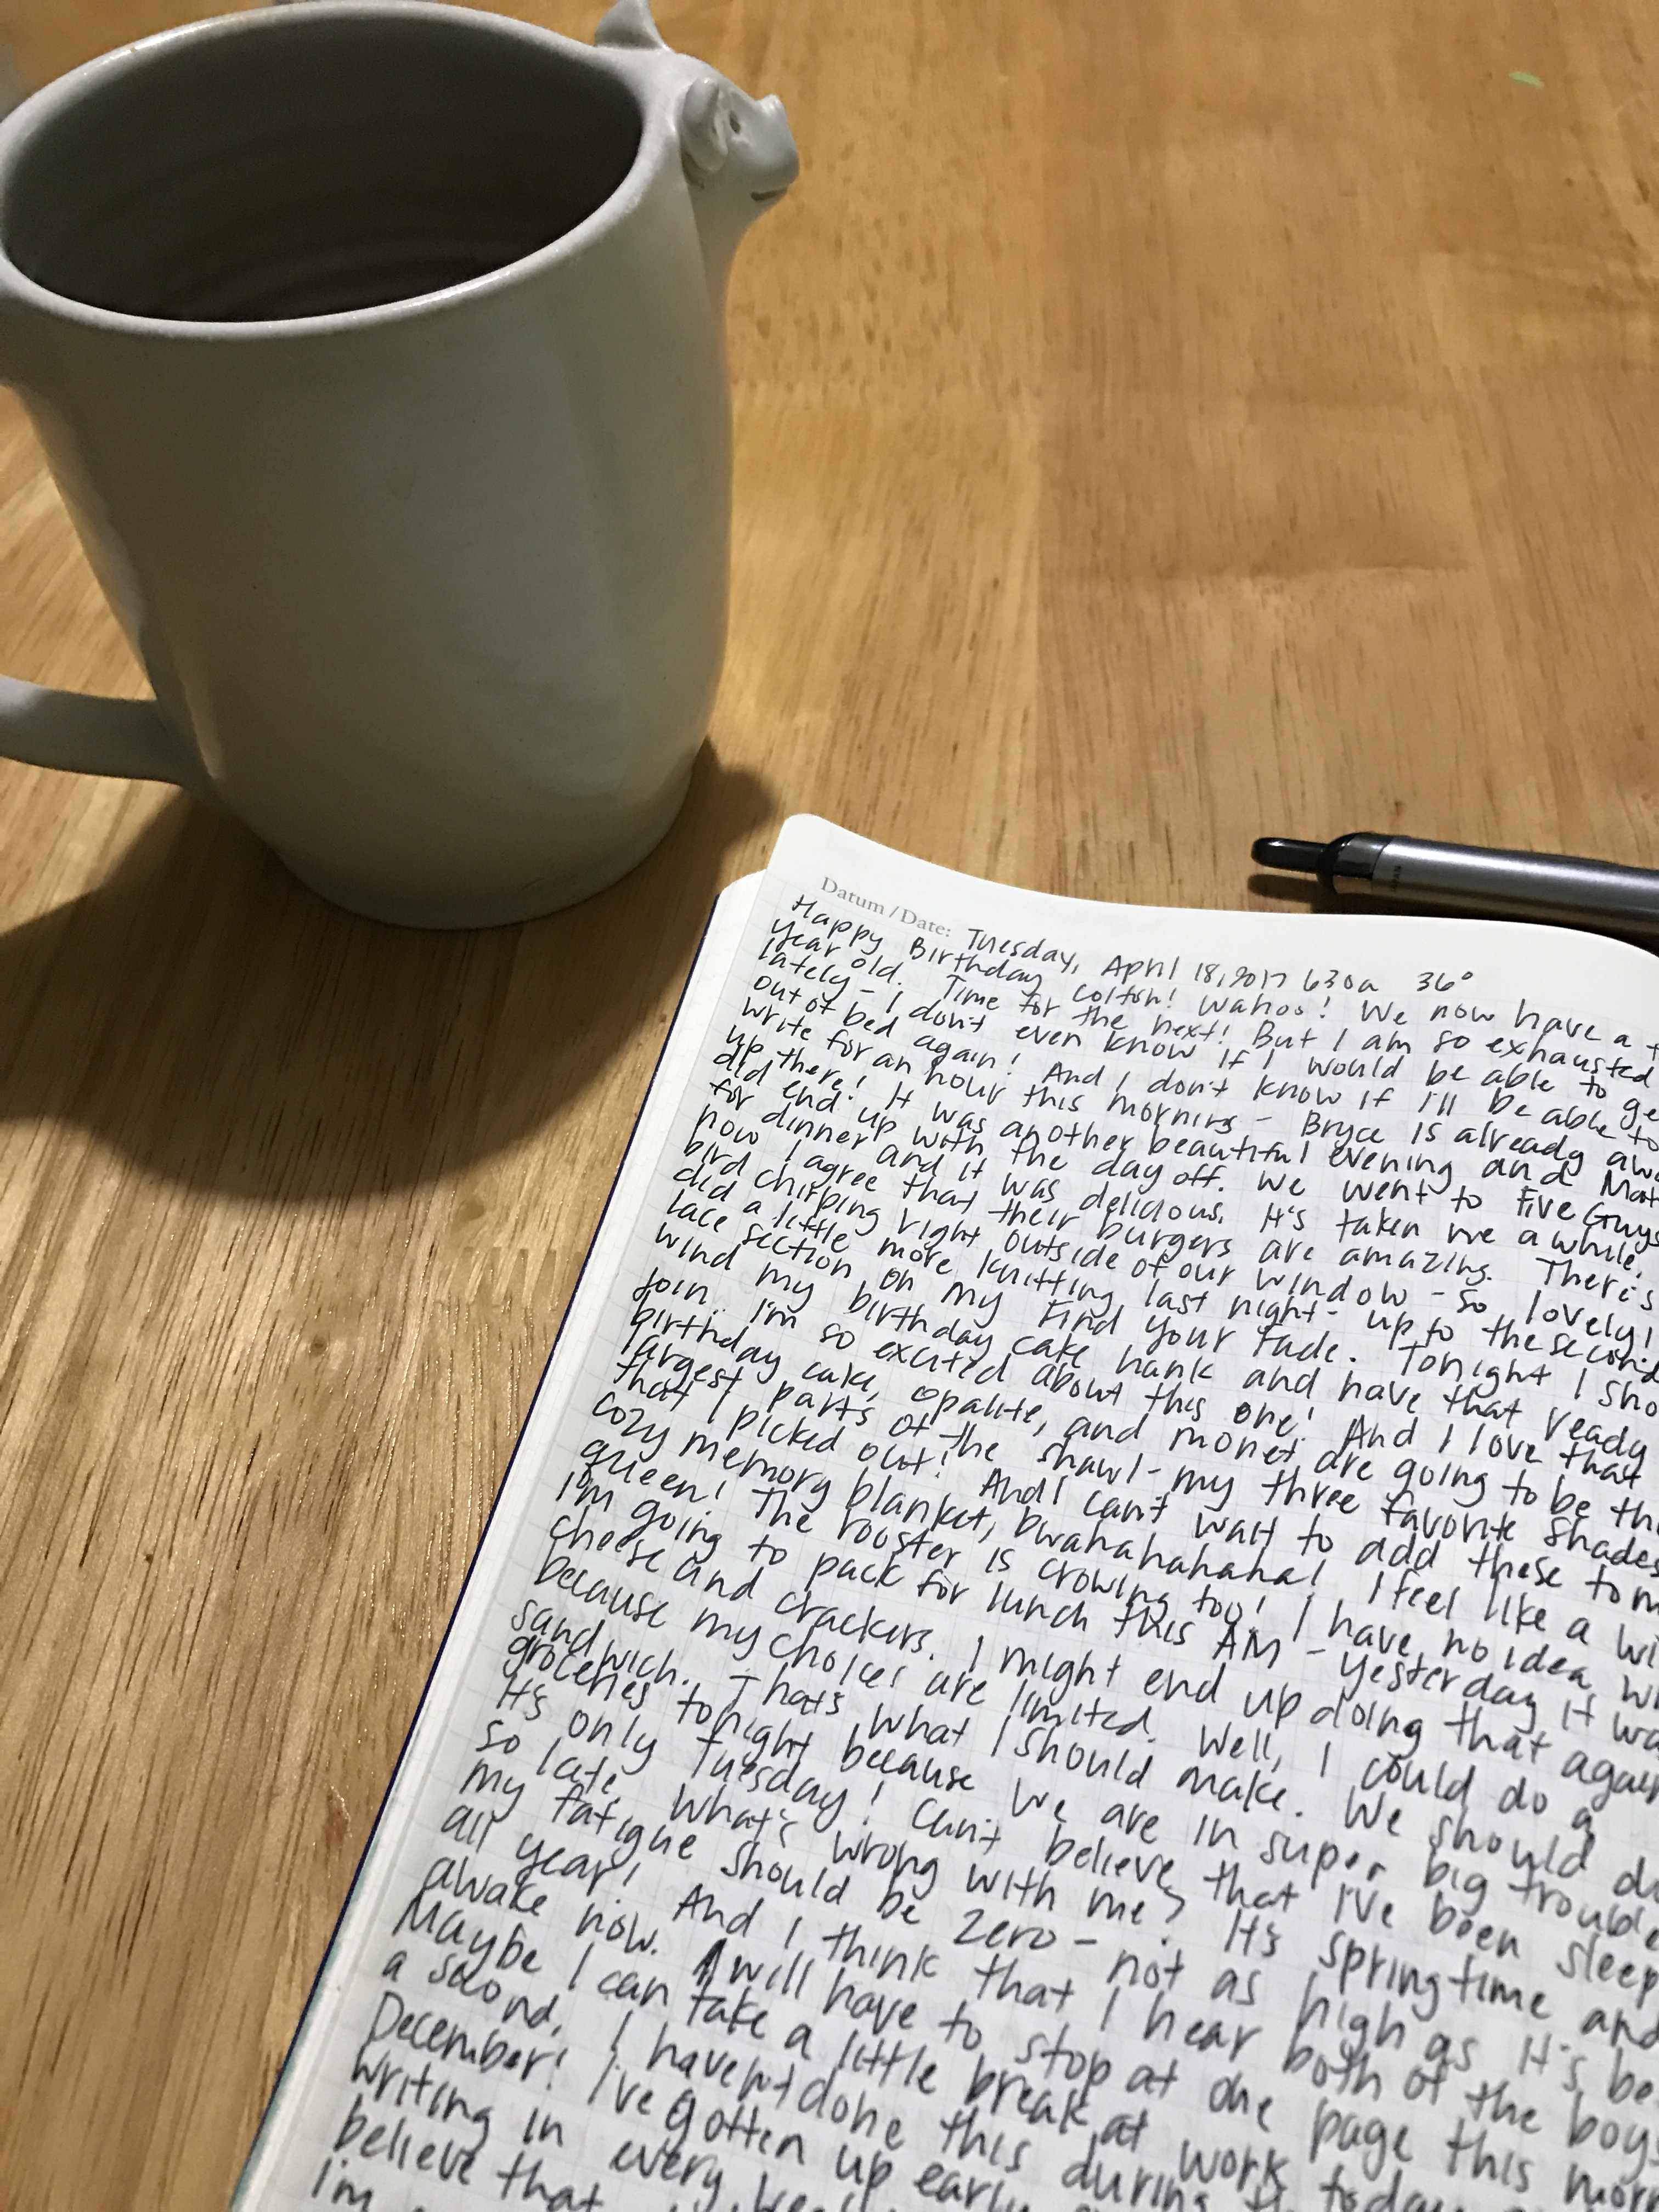 Datum / Date: Tuesday, April 18, 2017 630a 36°
Happy Birthday Colton! Wahoo! We now have a
year old. Time for the next! But I am so exhausted
lately - I don't even know if I would be able to get
out of bed again! And I don't know if I'll be able to
write for an hour this morning - Bryce is already
up there! It was another beautiful evening and
did end up with the day off. We went to Five Guys
for dinner and it was delicious. It's taken me awhile,
now I agree that their burgers are amazing. There's
bird chirping right outside of our window - so lovely!
did a little more knitting last night - up to the second
lace section on my Find Your Fade. Tonight I
wind my birthday cake hank and have that ready
join. I'm so excited about this one! And I love that
birthday cake, opalite, and monet are going to be
largest parts of the shawl - my three favorite shades
that I picked out! And I can't wait to add these to
cozy memory blanket, bwahahahaha! I feel like a
queen! The rooster is crowing too! I have no idea
I'm going to pack for lunch this AM - yesterday it
cheese and crackers. I might end up doing that again
because my choices are limited. Well, I could do a
sandwich. That's what I should make. We should
groceries tonight because we are in super big trouble
It's only Tuesday! Can't believe that I've been
so late. What's wrong with me? It's springtime and
my fatigue should be zero - not as high as it's
all year! And I think that I hear both of the boys
awake now. I will have to stop at one page this
Maybe I can take a little break at work
a second. I haven't done this during
December! I've gotten up early
writing in every
believe that
I'm